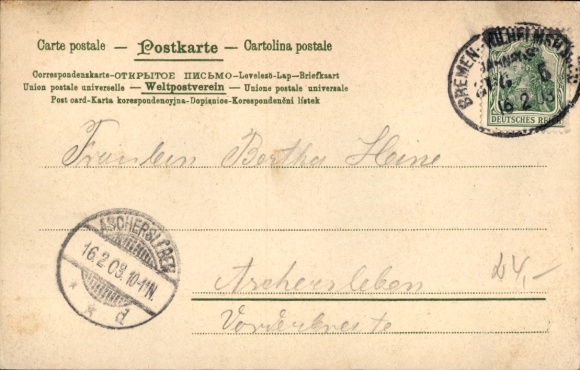 Carte postale — Postkarte — Cartolina postale
Correspondenskarte-ОТКРЫТОЕ ПИСЬМО-Levelező-Lap-Briefkaart
Union postale universelle — Weltpostverein — Unione postale universale
Post card-Karta korespondencyjna-Dopisnice-Korespondenční lístek
BREMEN-WILHELMSHAVEN
BAHNPOST
ZUG 6
16 2 03
DEUTSCHES REICH
Fräulein Bertha Heine
ASCHERSLEBEN
16.2.03.10-11N.
* * d
Aschersleben
24,-
Vorderbreite